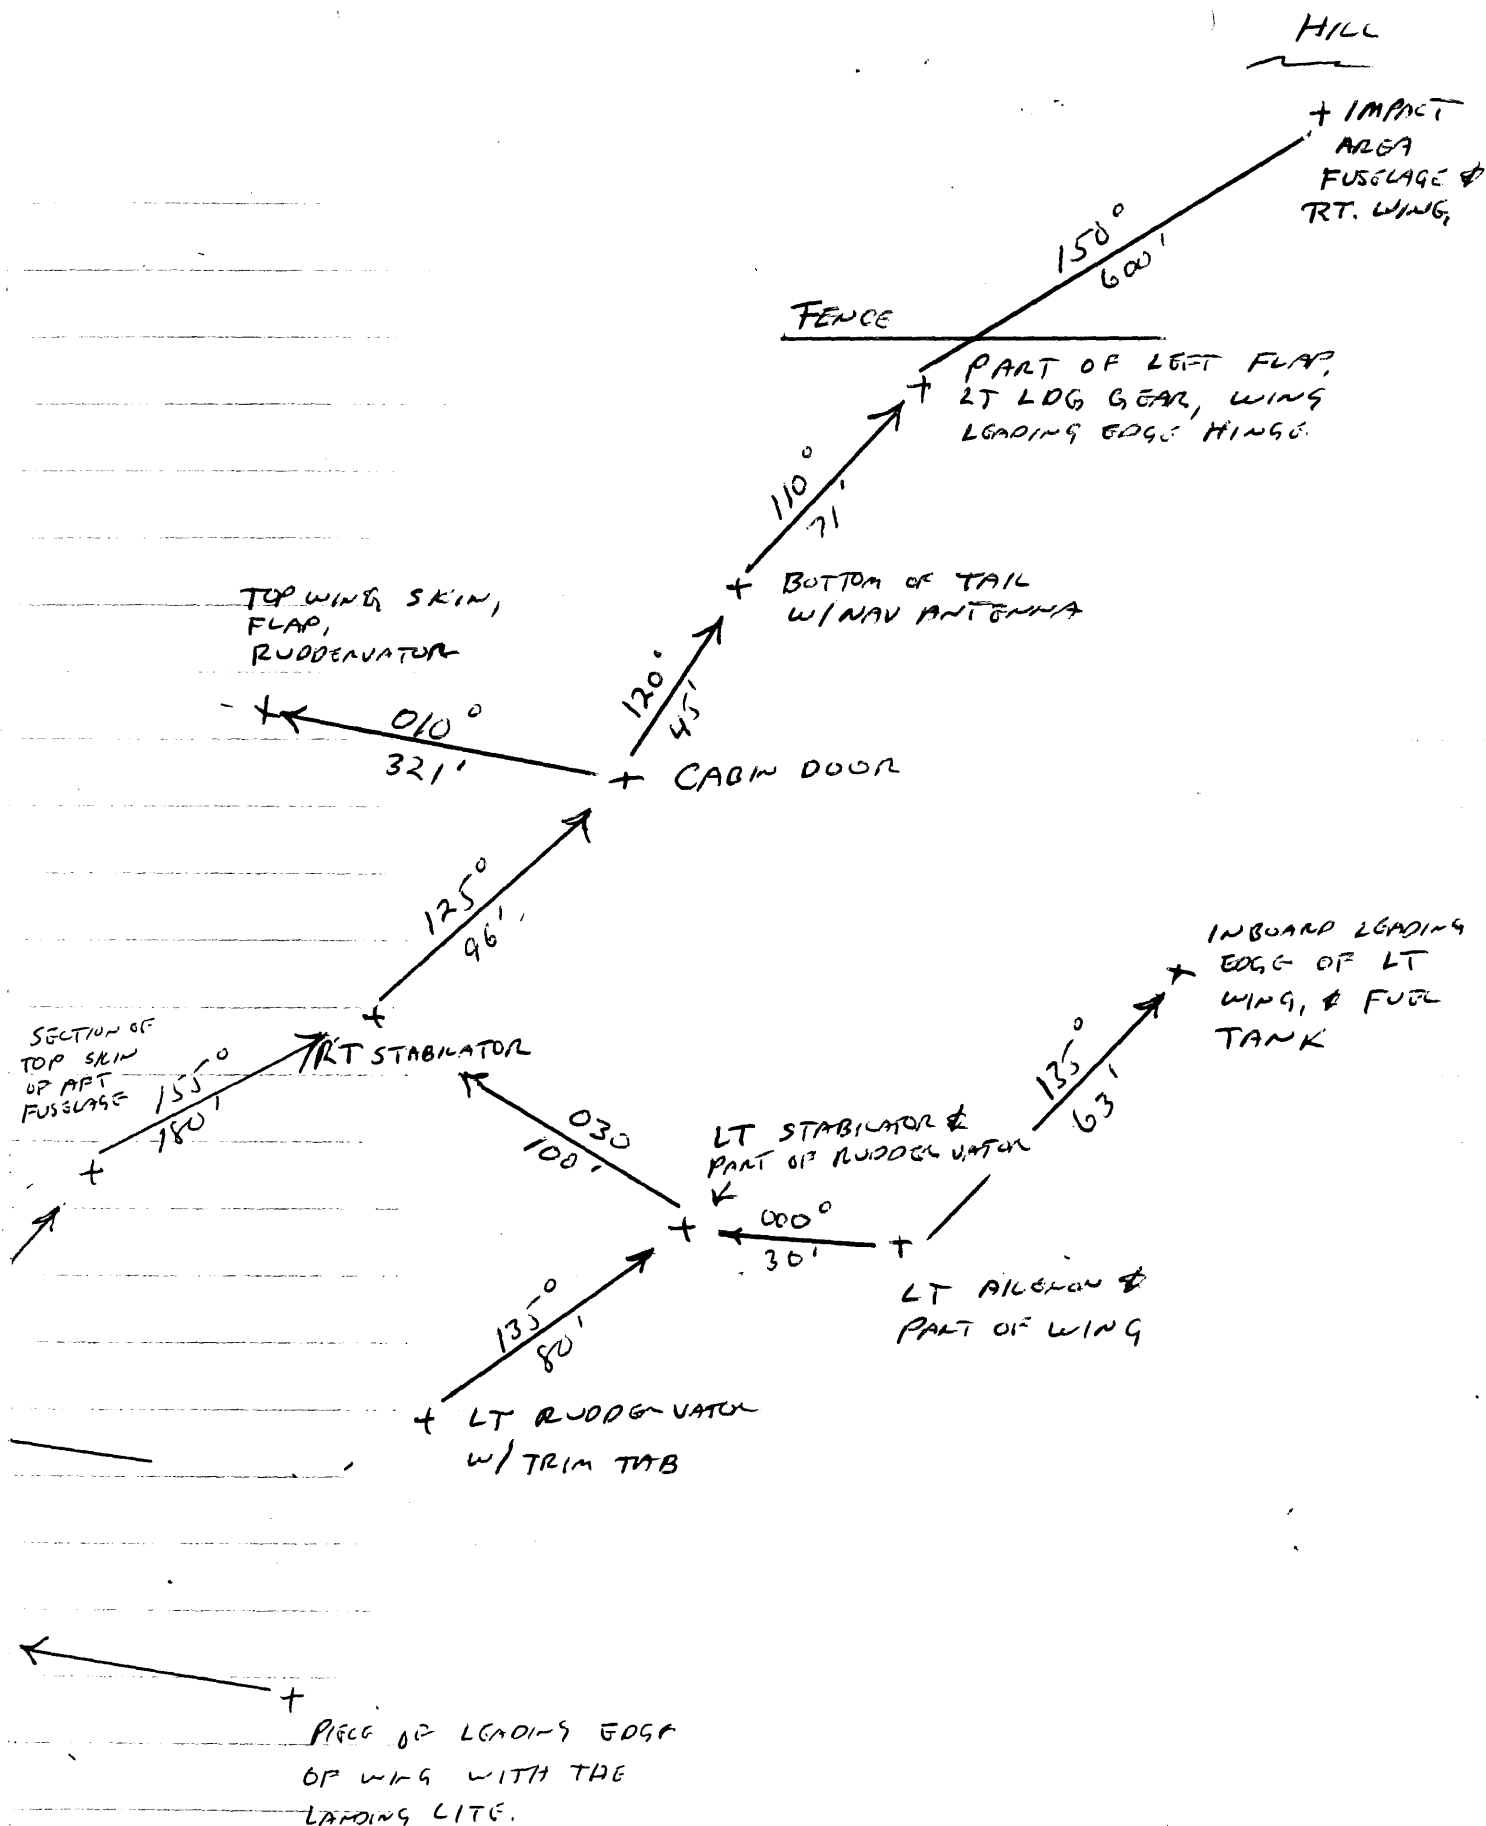 HILL
+ IMPACT
AREA
FUSELAGE &
RT. WING,
150°
600'
FENCE
+ PART OF LEFT FLAP,
LT LDG GEAR, WING
LEADING EDGE HINGE
110°
71'
+ BOTTOM OF TAIL
W/NAV ANTENNA
TOP WING SKIN,
FLAP,
RUDDERVATOR
120°
45'
+
010°
321'
+ CABIN DOOR
125°
96'
INBOARD LEADING
+ EDGE OF LT
WING, & FUEL
TANK
+
RT STABILATOR
SECTION OF
TOP SKIN
OF AFT
FUSELAGE
155°
180'
+
135°
63'
030
100'
LT STABILATOR &
PART OF RUDDERVATOR
+
000°
30'
+
LT AILERON &
PART OF WING
135°
80'
+ LT RUDDERVATOR
W/ TRIM TAB
+
PIECE OF LEADING EDGE
OF WING WITH THE
LANDING LITE.